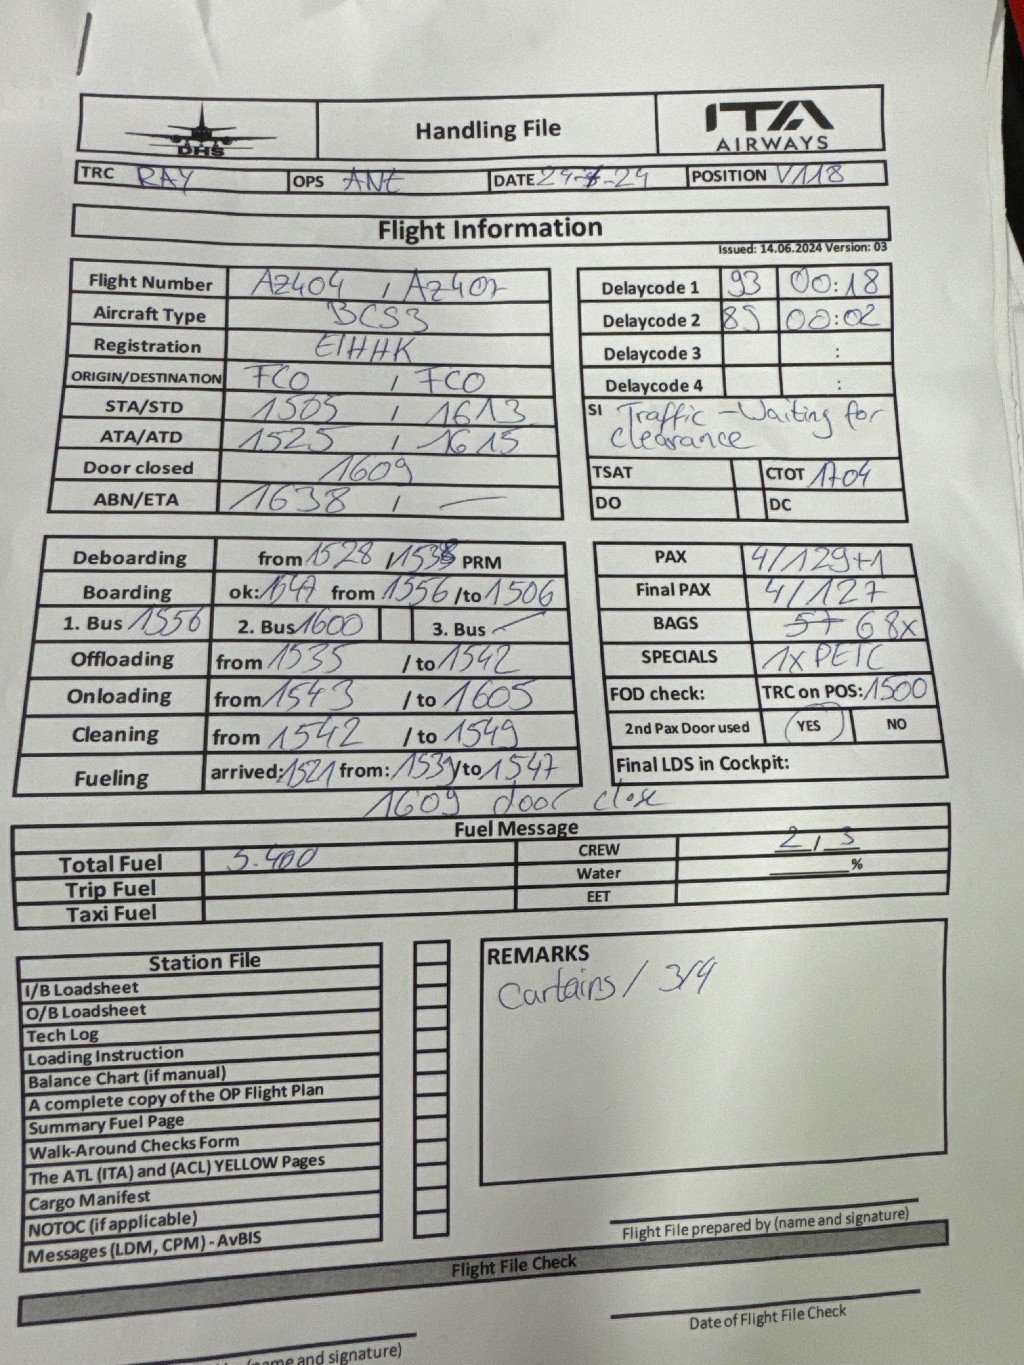 DHS
Handling File
ITA
AIRWAYS
TRC RAY OPS ANE DATE 24--24 POSITION V118
Flight Information
Issued: 14.06.2024 Version: 03
Flight Number AZ404 / AZ407
Aircraft Type BCS3
Registration EIHHK
ORIGIN/DESTINATION FCO / FCO
STA/STD 1505 / 1613
ATA/ATD 1525 / 1615
Door closed 1609
ABN/ETA 1638 /
Delaycode 1 93 00:18
Delaycode 2 85 00:02
Delaycode 3 :
Delaycode 4 :
SI Traffic - Waiting for
clearance
TSAT CTOT 1704
DO DC
Deboarding from 1528 /1538 PRM
Boarding ok: 1547 from 1556 /to 1506
1. Bus 1556 2. Bus 1600 3. Bus
Offloading from 1535 / to 1542
Onloading from 1543 / to 1605
Cleaning from 1542 / to 1549
Fueling arrived: 1521 from: 1539 /to 1547
1609 door close
PAX 4/129+1
Final PAX 4/127
BAGS 57 68x
SPECIALS 1x PETC
FOD check: TRC on POS: 1500
2nd Pax Door used YES NO
Final LDS in Cockpit:
Fuel Message
Total Fuel 5.400 CREW 2 / 3
Trip Fuel Water %
Taxi Fuel EET
Station File
I/B Loadsheet
O/B Loadsheet
Tech Log
Loading Instruction
Balance Chart (if manual)
A complete copy of the OP Flight Plan
Summary Fuel Page
Walk-Around Checks Form
The ATL (ITA) and (ACL) YELLOW Pages
Cargo Manifest
NOTOC (if applicable)
Messages (LDM, CPM) - AvBIS
REMARKS
Cartains / 3/4
Flight File prepared by (name and signature)
Flight File Check
Date of Flight File Check
(name and signature)